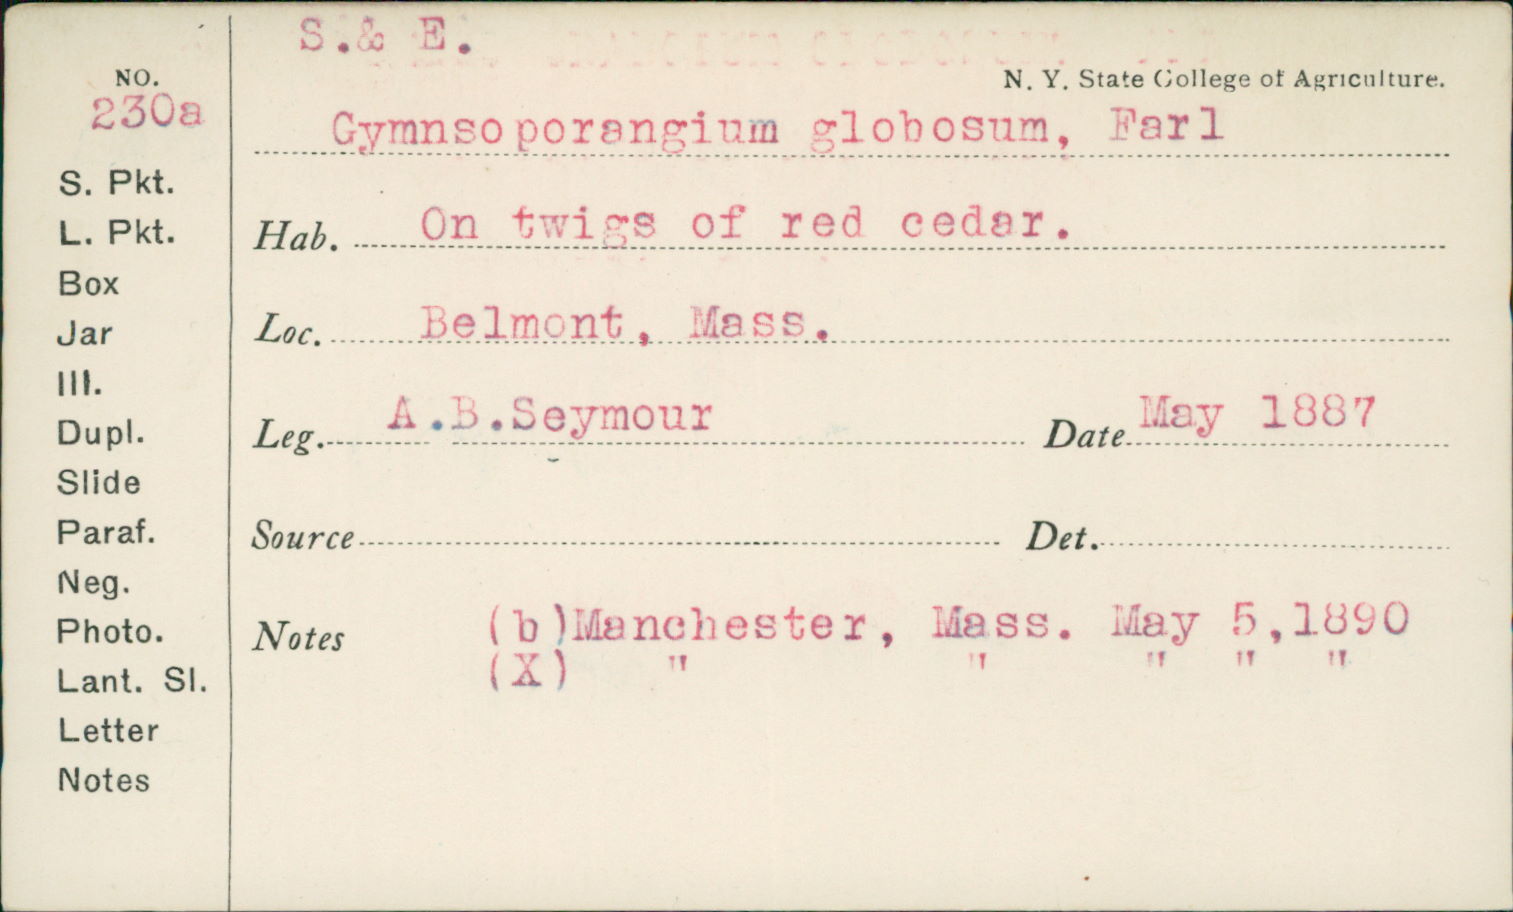 S.& E.
NO.
N. Y. State College of Agriculture.
230a
Gymnsoporangium globosum, Farl
S. Pkt.
L. Pkt.
Hab. On twigs of red cedar.
Box
Jar
Loc. Belmont, Mass.
Ill.
Dupl.
Leg. A.B.Seymour Date May 1887
Slide
Paraf.
Source Det.
Neg.
Photo.
Notes (b)Manchester, Mass. May 5,1890
(X) " " " " "
Lant. Sl.
Letter
Notes